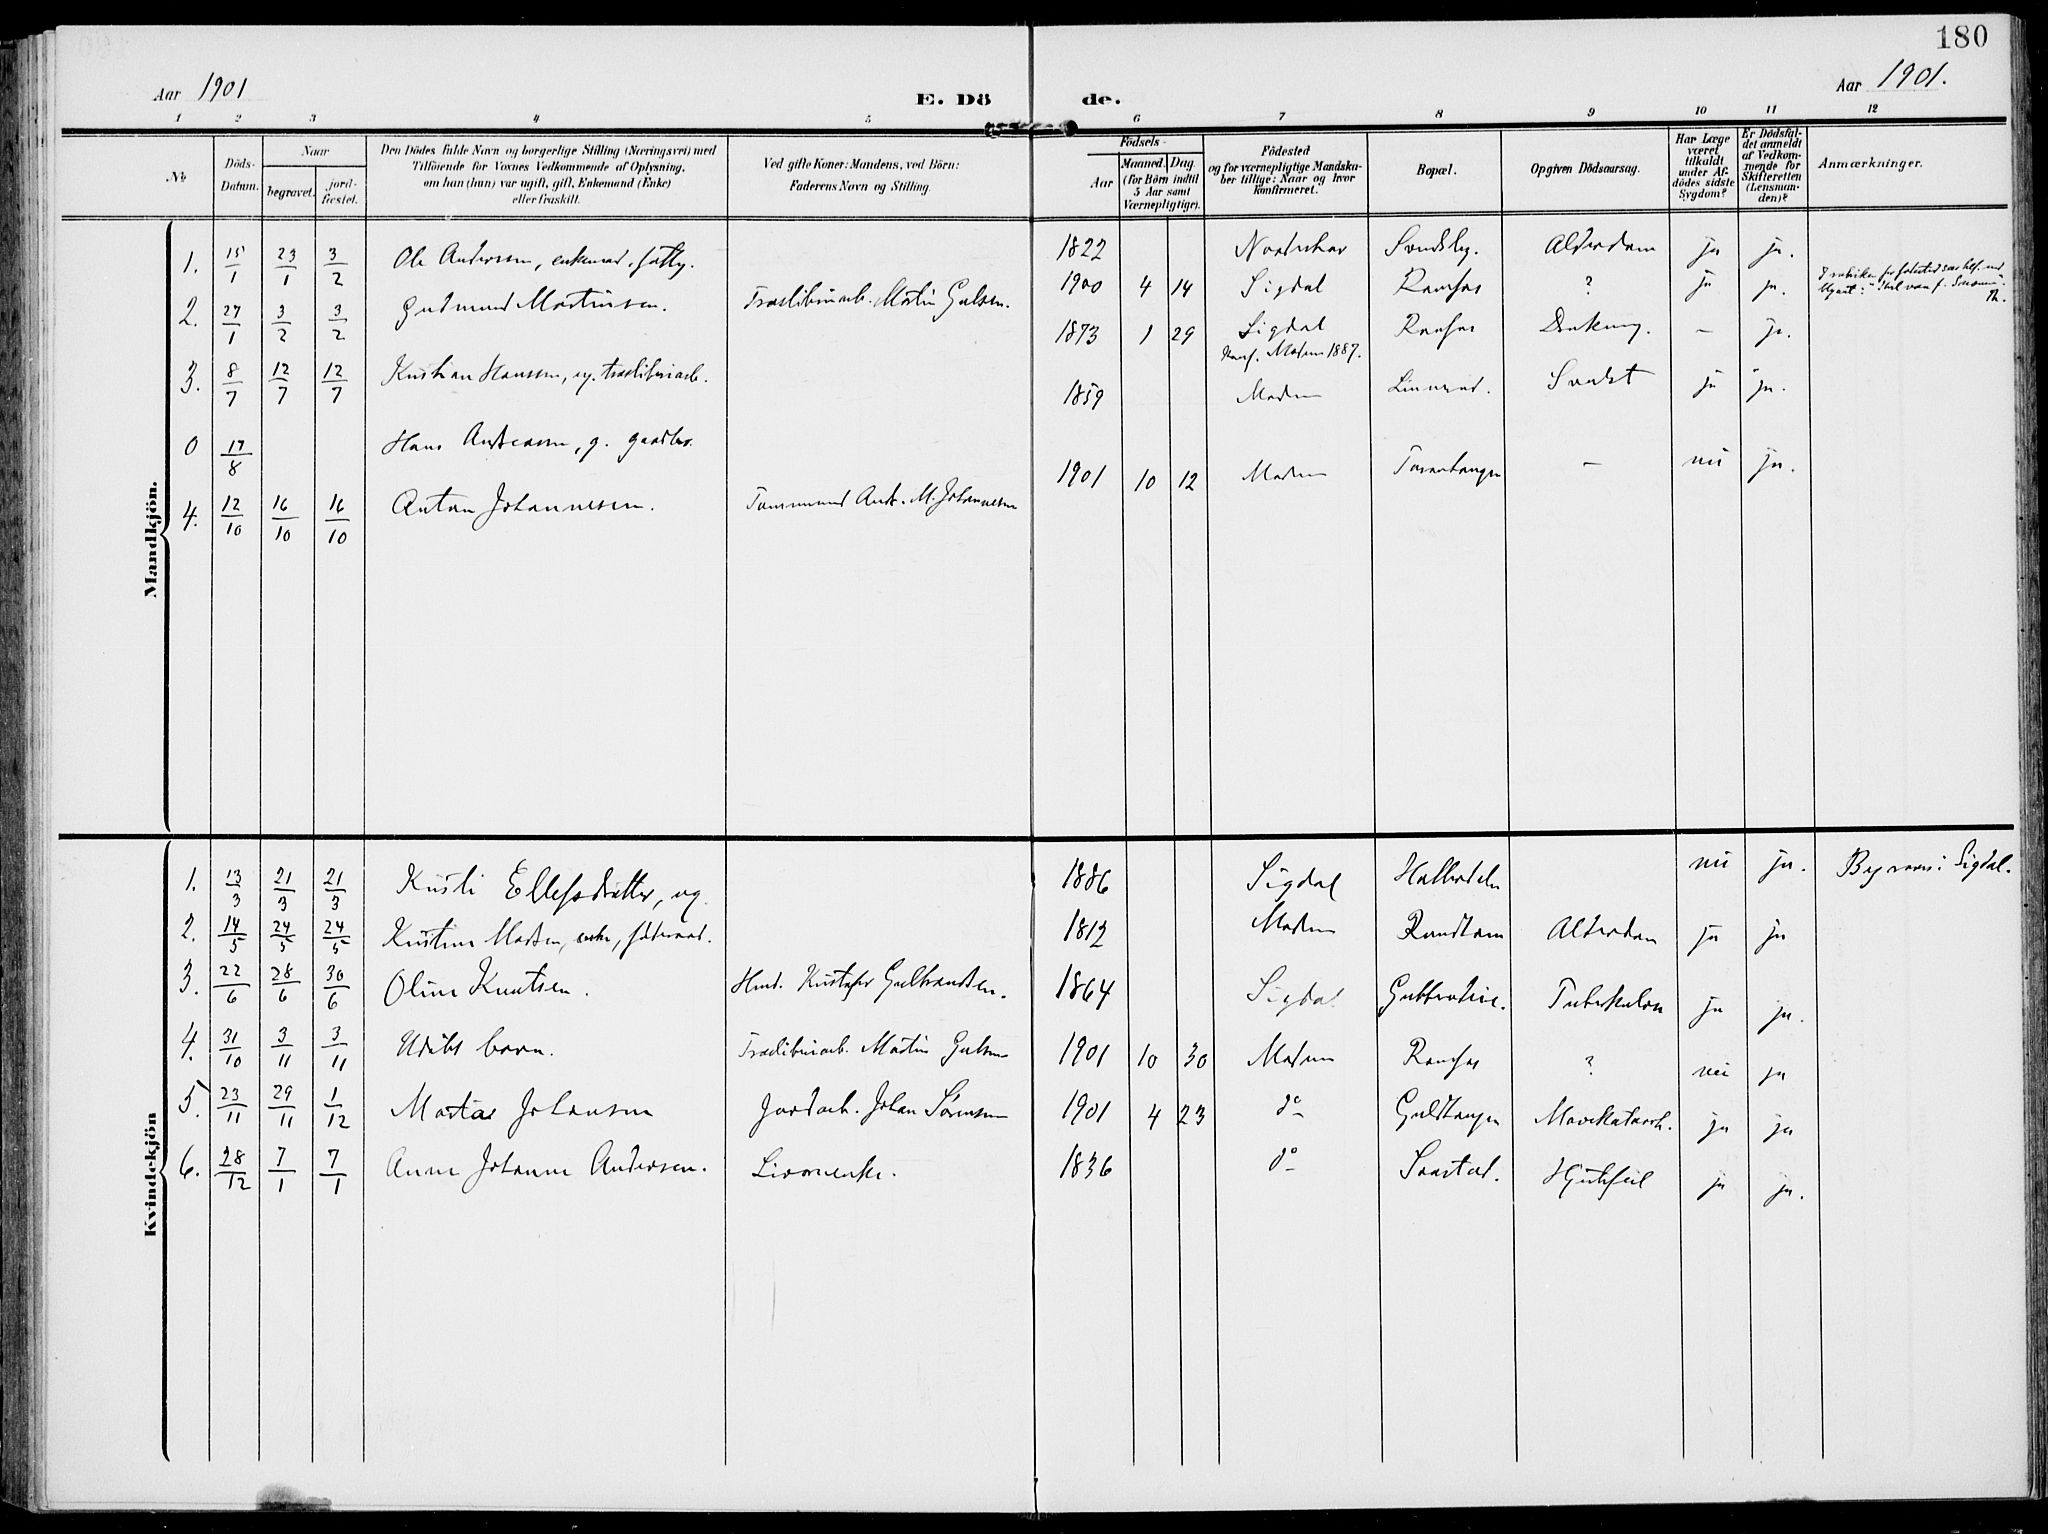 180
Aar 1901
Aar 1901.
E. Dö de.
1 2 3 4 5 6 7 8 9 10 11 12
No
Döds-Datum.
Naar
begravet.
jord-fæstet.
Den Dödes fulde Navn og borgerlige Stilling (Næringsvei) med
Tilföiende for Voxnes Vedkommende af Oplysning,
om han (hun) var ugift, gift, Enkemand (Enke)
eller fraskilt.
Ved gifte Koner: Mandens, ved Börn:
Faderens Navn og Stilling.
Födsels-
Aar
Maaned. Dag.
(for Börn indtil
5 Aar samt
Værnepligtige).
Födested
og for værnepligtige Mandska-
ber tillige: Naar og hvor
konfirmeret.
Bopæl.
Opgiven Dödsaarsag.
Har Læge
været
tilkaldt
under Af-
dödes sidste
Sygdom?
Er Dödsfal-
det anmeldt
af Vedkom-
mende for
Skifteretten
(Lensman-
den)?
Anmærkninger.
Mandkjön.
1. 15/1 23/1 3/2 Ole Anderssen, enkemand, fattig. 1822 Sondsby. Alderdom ja ja.
2. 27/1 3/2 3/2 Gudmund Martinsen. Træsliberiarb. Martin Gulsen. 1900 4 14 Sigdal Ramfos ? ja ja.
3. 8/7 12/7 12/7 Kristian Hanssen, ug. træsliberiarb. 1873 1 29 Sigdal Ramfos Drukning. — ja.
Konf. Modum 1887.
0 17/8 Hans Andreassen, g. gaardbr. 1859 Modum ja ja.
4. 12/10 16/10 16/10 Anton Johannesen. Tomtemand Andr. M. Johannesen 1901 10 12 Modum — nei ja.
Kvindekjön
1. 13/3 21/3 21/3 Kristi Ellefsdatter, ug. 1886 Sigdal nei ja. Begraves i Sigdal.
2. 14/5 24/5 24/5 Kristine Madsen, enke, föderaad. 1812 Modum Alderdom ja ja
3. 22/6 28/6 30/6 Oline Knutsen. Hmd. Kristofer Gulbrandsen. 1864 Sigdal Tuberkulose ja ja.
4. 31/10 3/11 3/11 Udöbt barn. Træsliberiarb. Martin Gulsen 1901 10 30 Modum Ramfos ? nei ja
5. 23/11 29/11 1/12 Johansen Jordarb. Johan Sørensen 1901 4 23 do Mavekatarrh. ja ja
6. 28/12 7/1 7/1 Anne Johanne Andersen. 1836 do Hjertefeil ja ja.